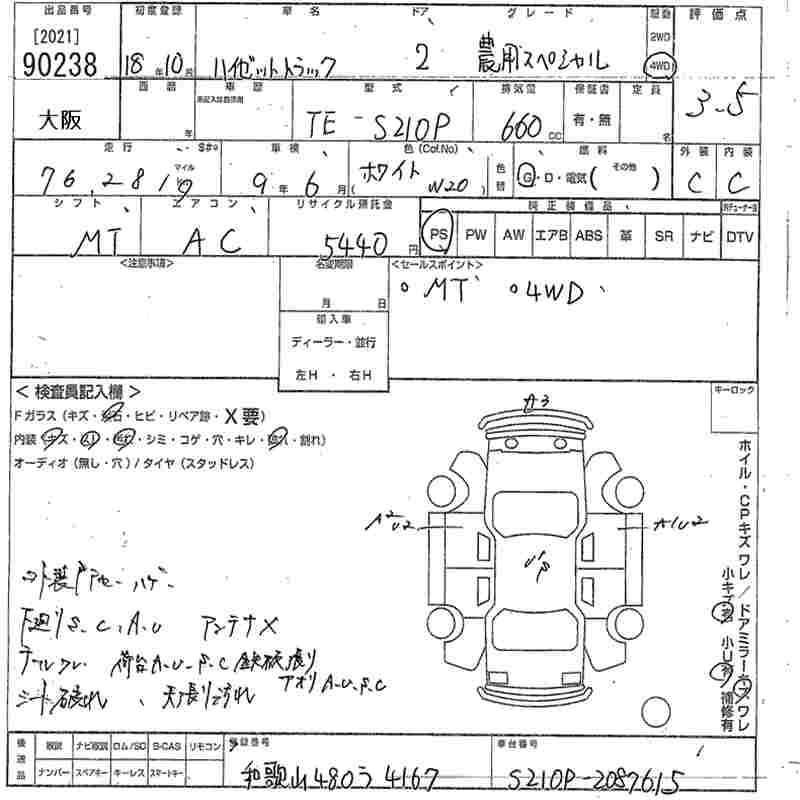 出品番号 初度登録 車名 ドア グレード 駆動 評価点
[2021]
90238 18年10月 ハイゼットトラック 2 農用スペシャル 2WD 4WD 3.5
西暦 車歴 型式 排気量 保証書 定員
大阪 年 TE-S210P 660cc 有・無 名
走行 車検 色(Col.No) 燃料 外装 内装
76,281 マイル 9年6月 ホワイト(W20) 色替 G・D・電気( その他 ) C C
シフト エアコン リサイクル預託金 純正装備品
MT AC 5440円 PS PW AW エアB ABS 革 SR ナビ DTV
<注意事項> 名変期限 <セールスポイント>
月 日 ○MT ○4WD
輸入車
ディーラー・並行
左H・右H
<検査員記入欄> キーロック
Fガラス(キズ・飛石・ヒビ・リペア跡・X要) A3
内装(キズ・スレ・汚れ・シミ・コゲ・穴・キレ・破れ・割れ)
オーディオ(無し・穴)/タイヤ(スタッドレス)
A2 U2 A1U2
U1 P
ホイル・CPキズワレ/ドアミラーキズワレ
小キズ有 小U有 補修有
外装ドアセーハゲ
下廻りS.C.A.U アンテナX
テールワレ 荷台A.U.P.C 鉄板張り
シート破れ、天張り汚れ アオリA.U.P.C
後送品 取説 ナビ取説 ロム/SD B-CAS リモコン 登録番号 車台番号
ナンバー スペアキー キーレス スマートキー 和歌山480う4167 S210P-2087615